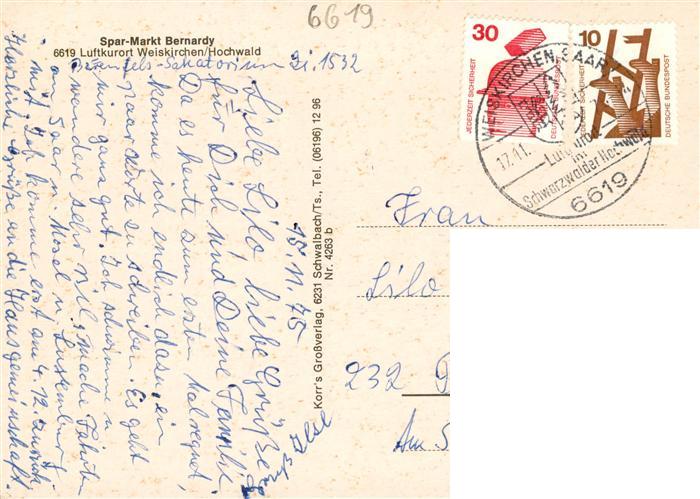 6619
Spar-Markt Bernardy
6619 Luftkurort Weiskirchen/Hochwald
Sanatorium Zi. 1532
15. 11. 75
Liebe Lilo, liebe Grüße
für Dich und Deine Familie.
Da es heute zum ersten Mal regnet,
komme ich endlich dazu, ein
paar Worte zu schreiben. Es geht
mir ganz gut. Ich schwimme u.
wandere sehr viel, mache Fahrten
an Saar u. Mosel u. Luxemburg
mit. Ich komme erst am 4. 12. zurück.
Herzliche Grüße an die Hausgemeinschaft.
Ilse
Korr's Großverlag, 6231 Schwalbach/Ts., Tel. (06196) 12 96
Nr. 4263 b
30
JEDERZEIT SICHERHEIT
DEUTSCHE BUNDESPOST
10
JEDERZEIT SICHERHEIT
DEUTSCHE BUNDESPOST
WEISKIRCHEN, SAAR
17.11.
Luftkurort
im
Schwarzwälder Hochwald
6619
Frau
Lilo
232
Am S